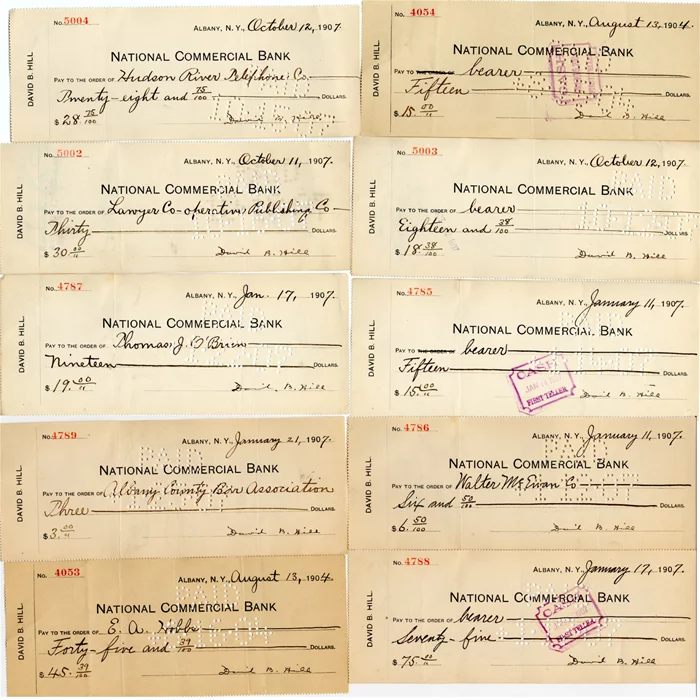 DAVID B. HILL
No. 5004
ALBANY, N. Y., October 12, 1907.
NATIONAL COMMERCIAL BANK
PAY TO THE ORDER OF Hudson River Telephone Co.
Twenty-eight and 75/100 DOLLARS.
$ 28 75/100 David B. Hill
DAVID B. HILL
4054
ALBANY, N. Y., August 13, 1904.
NATIONAL COMMERCIAL BANK
PAY TO THE ORDER OF bearer
Fifteen DOLLARS.
$ 15 00/11 David B. Hill
DAVID B. HILL
No. 5002
ALBANY, N. Y., October 11, 1907.
NATIONAL COMMERCIAL BANK
PAY TO THE ORDER OF Lawyer Co-operative Publishing Co
Thirty DOLLARS.
$ 30 00/11 David B. Hill
DAVID B. HILL
No. 5003
ALBANY, N. Y., October 12, 1907.
NATIONAL COMMERCIAL BANK
PAID
PAY TO THE ORDER OF bearer
Eighteen and 38/100 DOLLARS.
$ 18 38/100 David B. Hill
DAVID B. HILL
No. 4787
ALBANY, N. Y., Jan. 17, 1907.
NATIONAL COMMERCIAL BANK
PAY TO THE ORDER OF Thomas J. O'Brien
Nineteen DOLLARS.
$ 19 00/11 David B. Hill
DAVID B. HILL
No. 4785
ALBANY, N. Y., January 11, 1907.
NATIONAL COMMERCIAL BANK
PAY TO THE ORDER OF bearer
Fifteen DOLLARS.
CASH
JAN
FIRST TELLER
$ 15 00/11 David B. Hill
DAVID B. HILL
No. 4789
ALBANY, N. Y., January 21, 1907.
PAID
NATIONAL COMMERCIAL BANK
PAY TO THE ORDER OF Albany County Bar Association
Three DOLLARS.
$ 3 00/11 David B. Hill
DAVID B. HILL
No. 4786
ALBANY, N. Y., January 11, 1907.
PAID
NATIONAL COMMERCIAL BANK
PAY TO THE ORDER OF Walter McEwan Co
Six and 50/100 DOLLARS.
$ 6 50/100 David B. Hill
DAVID B. HILL
No. 4053
ALBANY, N. Y., August 13, 1904.
PAID
NATIONAL COMMERCIAL BANK
PAY TO THE ORDER OF E. A. Hobbs
Forty-five and 39/100 DOLLARS.
$ 45 39/100 David B. Hill
DAVID B. HILL
No. 4788
ALBANY, N. Y., January 17, 1907.
NATIONAL COMMERCIAL BANK
PAY TO THE ORDER OF bearer
CASH
FIRST TELLER
Seventy-five DOLLARS.
$ 75 00/11 David B. Hill